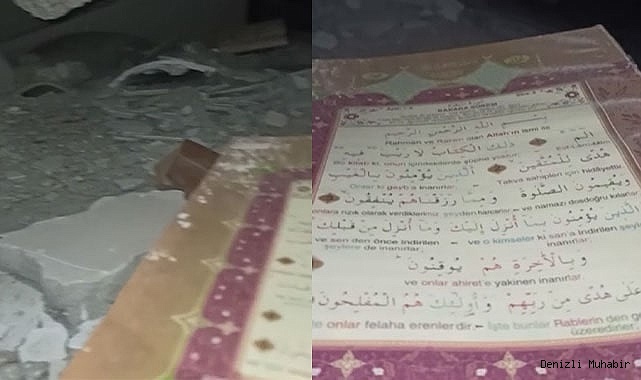 BAKARA SÛRESİ
بِسْمِ اللّٰهِ الرَّحْمٰنِ الرَّحِيمِ
Rahman ve Rahim olan Allah'ın ismi ile
الٓمٓ ذٰلِكَ الْكِتَابُ لَا رَيْبَ فِيهِ
Bu kitap ki, onun içindekilerde şüphe yoktur.
هُدًى لِلْمُتَّقِينَ الَّذِينَ يُؤْمِنُونَ بِالْغَيْبِ
Takva sahipleri için hidayettir.
Onlar ki gayb'a inanırlar.
وَيُقِيمُونَ الصَّلٰوةَ وَمِمَّا رَزَقْنَاهُمْ يُنْفِقُونَ
rızık olarak verdiklerimiz şeyden harcarlar – ve namazı dosdoğru
الَّذِينَ يُؤْمِنُونَ بِمَا أُنْزِلَ إِلَيْكَ وَمَا أُنْزِلَ مِنْ قَبْلِكَ
ve sen den önce indirilen – ve o kimseler ki san'a indirilen
şeylere de inanırlar. inanırlar.
وَبِالْاٰخِرَةِ هُمْ يُوقِنُونَ
ve onlar ahiret'e yakinen inanırlar.
عَلٰى هُدًى مِنْ رَبِّهِمْ وَأُولٰئِكَ هُمُ الْمُفْلِحُونَ
onlar felaha erenlerdir.– İşte bunlar Rablerin den
Denizli Muhabir